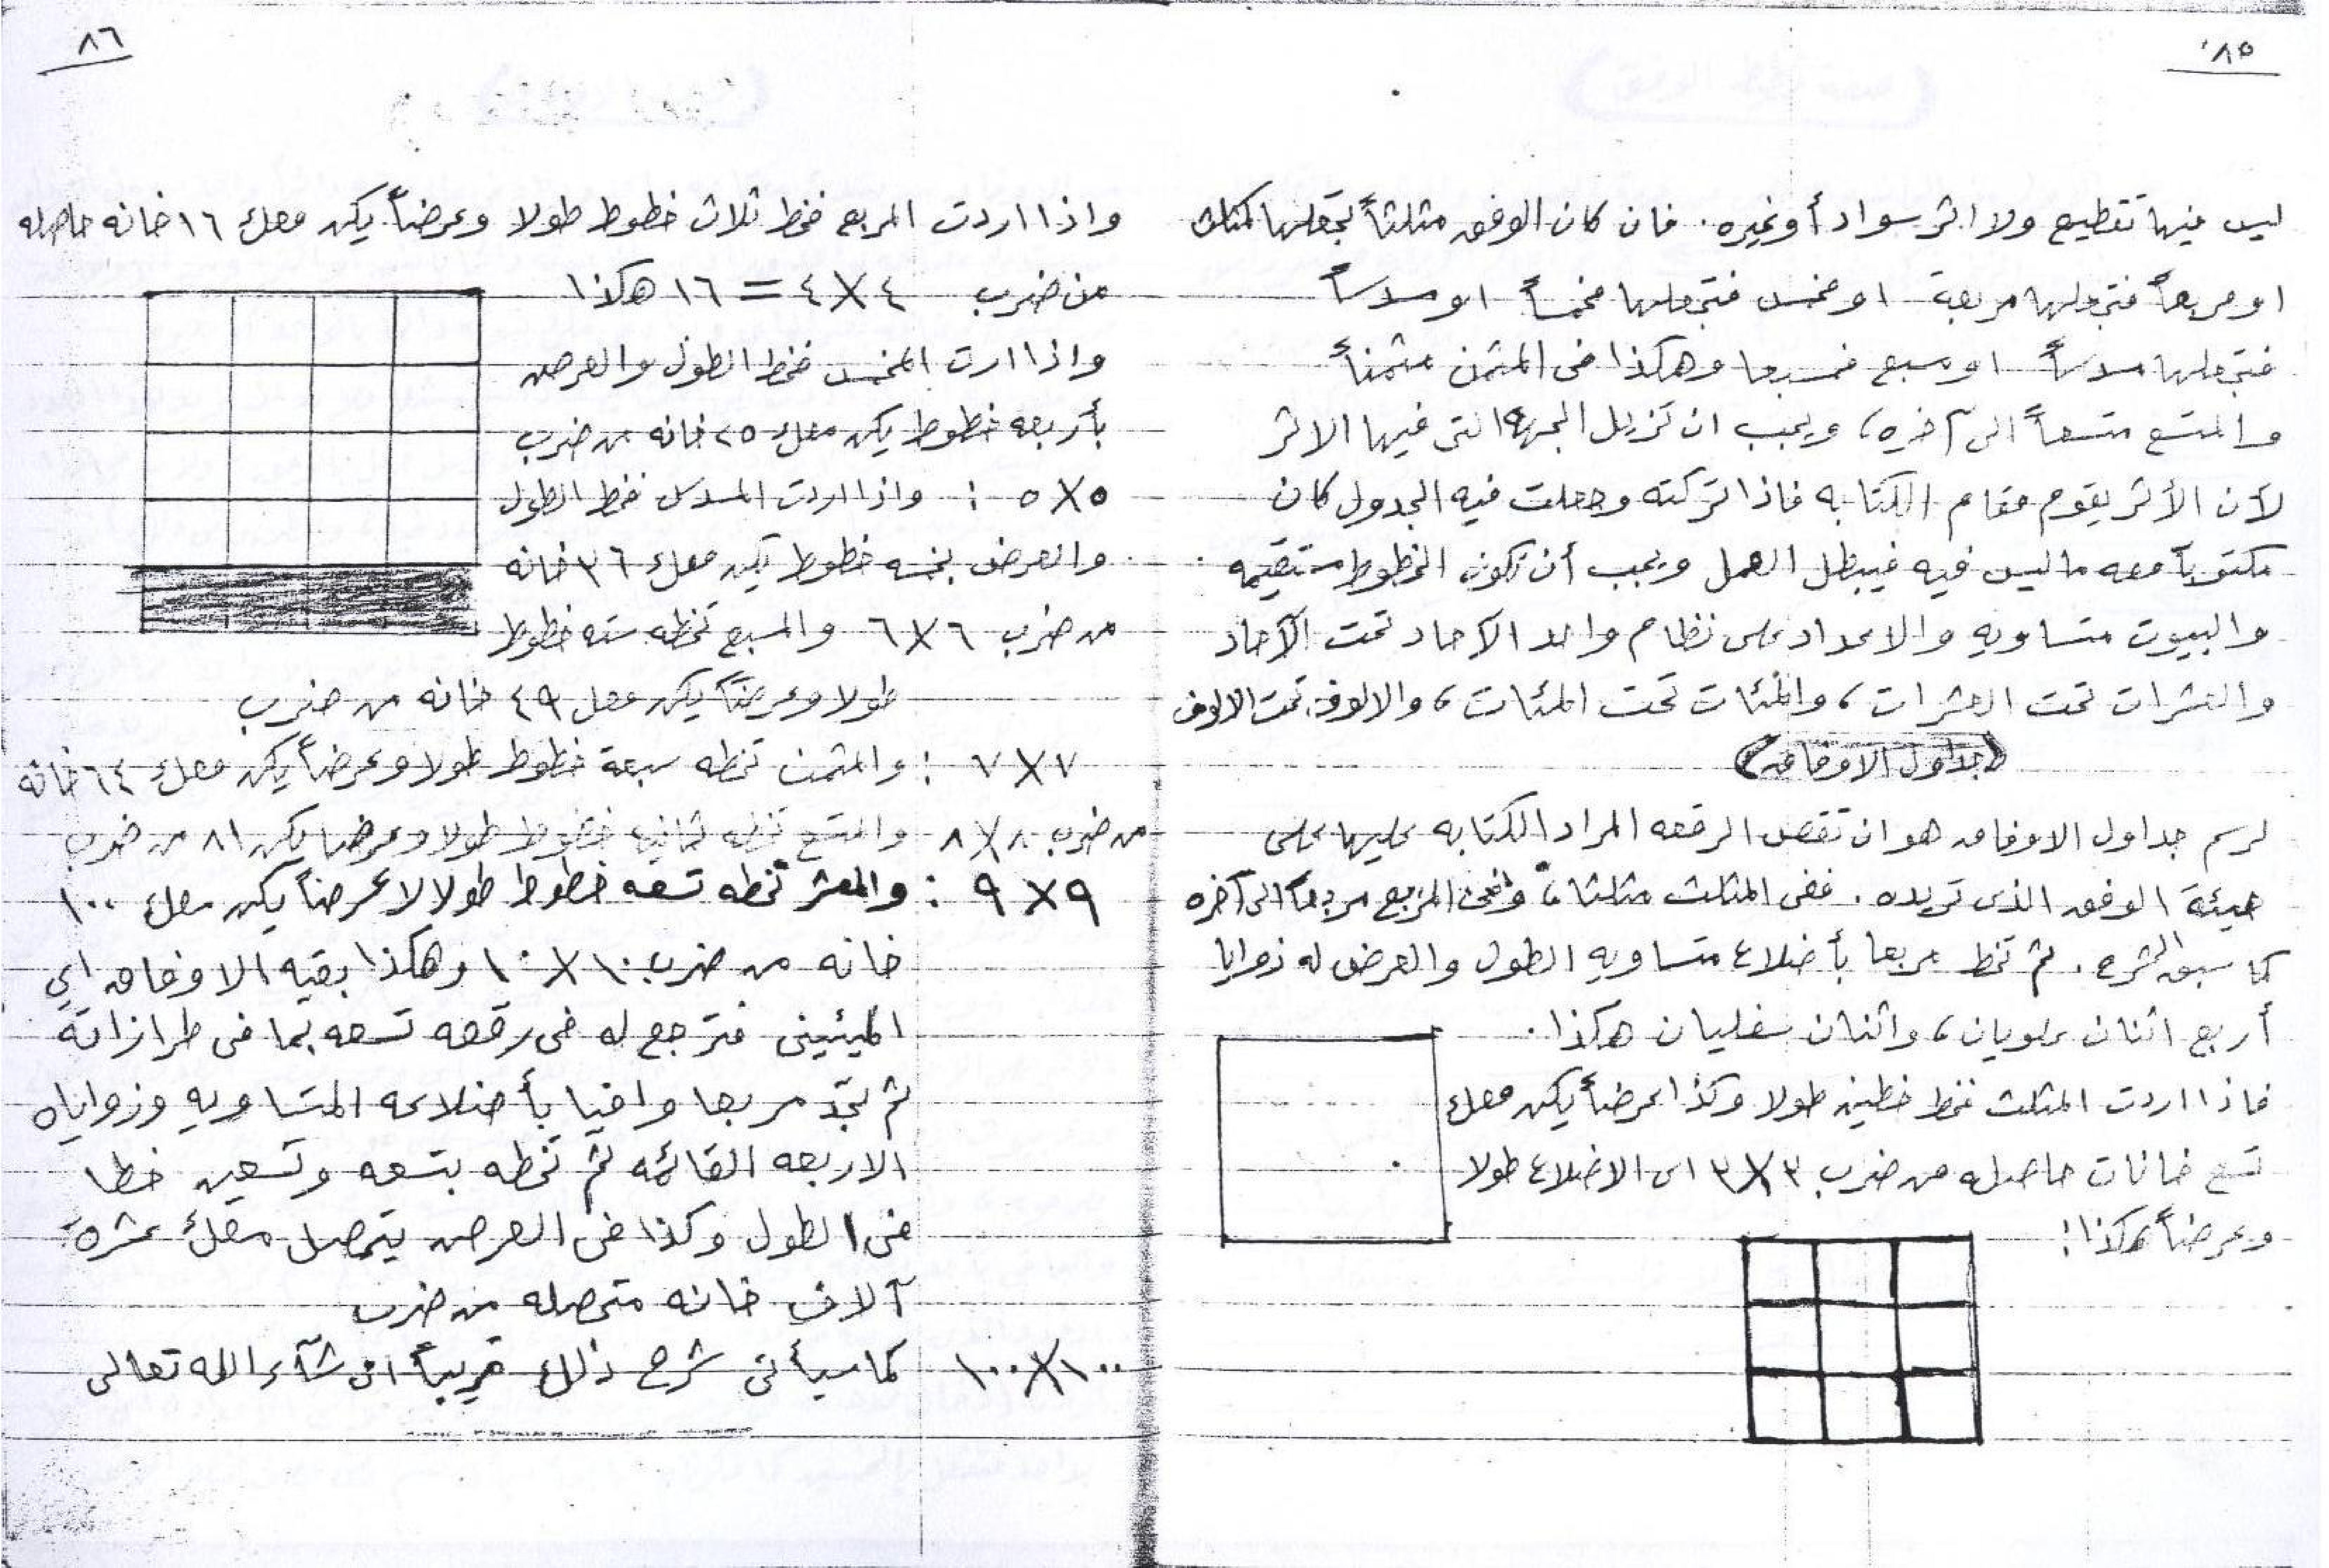 ٨٥
ليس فيها تقطيع ولا اثر سواد أو غيره. فان كان الوفق مثلثاً تجعلها كمثلث
او مربعاً فتجعلها مربعة او مخمس فتجعلها مخمساً او مسدساً
فتجعلها مسدساً او مسبع فمسبعا وهكذا فى المثمن مثمناً
والمتسع متسعاً الى آخره، ويجب ان تزيل الجهة التى فيها الاثر
لأن الأثر يقوم مقام الكتابه فاذا تركته وجعلت فيه الجدول كان
مكتوباً معه ما ليس فيه فيبطل العمل ويجب أن تكون الخطوط مستقيمه
والبيوت متساويه والاعداد على نظام واحد الآحاد تحت الآحاد
والعشرات تحت العشرات، والمئات تحت المئات، والالوف تحت الالوف
(جداول الاوفاق)
لرسم جداول الاوفاق هو ان تقص الرقعه المراد الكتابه عليها على
هيئة الوفق الذى تريده. ففى المثلث مثلثا، وفى المربع مربعاً الى آخره
كما سبق الشرح. ثم تخط مربعا بأضلاع متساويه الطول والعرض له زوايا
أربع اثنان علويان، واثنان سفليان هكذا.
فاذا اردت المثلث فخط خطين طولا وكذا عرضاً يكن معك
تسع خانات حاصله من ضرب ٣×٣ اى الاضلاع طولا
وعرضاً هكذا:
٨٦
واذا اردت المربع فخط ثلاث خطوط طولا وعرضاً يكن معك ١٦ خانه حاصله
من ضرب ٤×٤ = ١٦ هكذا
واذا ارت المخمس فخط الطول والعرض
بأربعه خطوط يكن معك ٢٥ خانه من ضرب
٥×٥ : واذا اردت المسدس فخط الطول
والعرض بخمسه خطوط يكن معك ٣٦ خانه
من ضرب ٦×٦ والمسبع تخطه سته خطوط
طولا وعرضاً يكن معك ٤٩ خانه من ضرب
٧×٧ : والمثمن تخطه سبعة خطوط طولا وعرضاً يكن معك ٦٤ خانه
من ضرب ٨×٨ والمتسع تخطه ثمانيه خطوط طولا وعرضا يكن ٨١ من ضرب
٩×٩ : والمعشر تخطه تسعه خطوط طولا لا عرضاً يكن معك ١٠٠
خانه من ضرب ١٠×١٠ وهكذا بقيه الاوفاق اى
الميئينى فترجع له فى رقعه تسعه بما فى طرازاته
ثم تجد مربعا وافيا بأضلاعه المتساويه وزواياه
الاربعه القائمه ثم تخطه بتسعه وتسعين خطا
فى الطول وكذا فى العرض يتحصل معك عشرة
آلاف خانه متحصله من ضرب
١٠٠×١٠٠ كما سيأتى شرح ذلك قريباً ان شآء الله تعالى